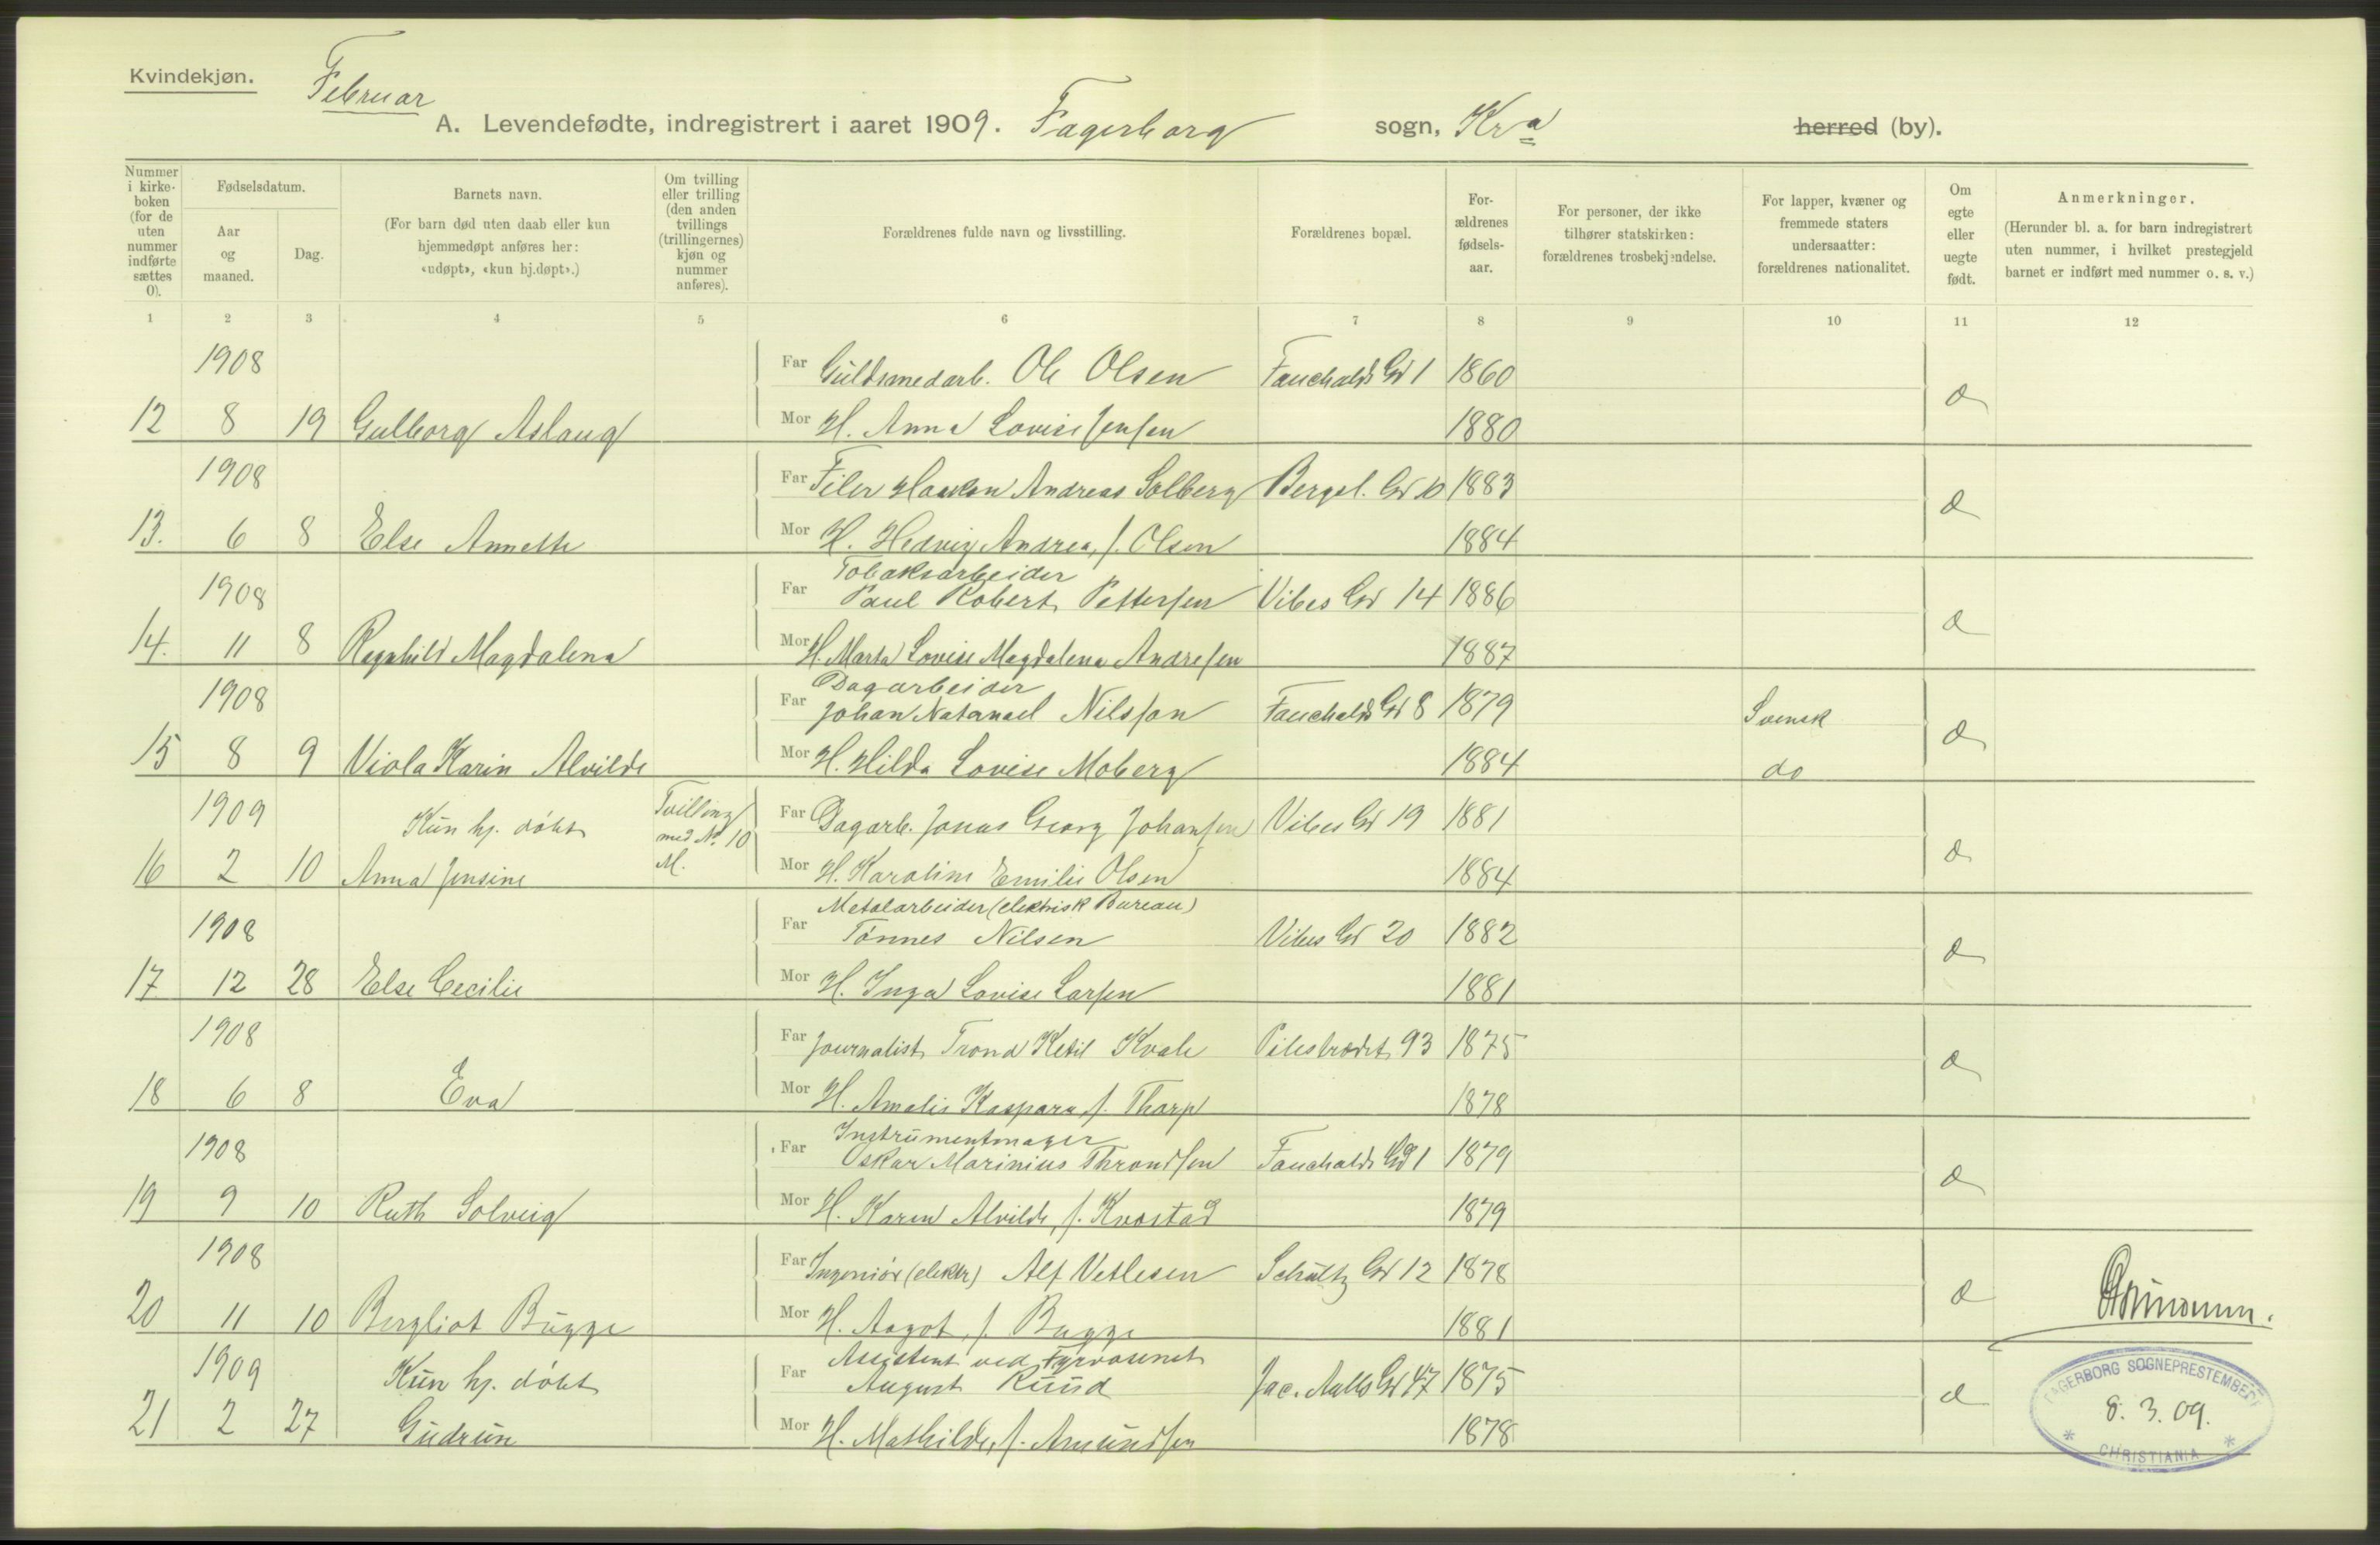 Kvindekjøn.
Februar
A. Levendefødte, indregistrert i aaret 1909. Fagerborg sogn, Kra herred (by).
Nummer i kirke-boken (for de uten nummer indførte sættes 0).
Fødselsdatum.
Aar og maaned.
Dag.
Barnets navn.
(For barn død uten daab eller kun hjemmedøpt anføres her: «udøpt», «kun hj.døpt».)
Om tvilling eller trilling (den anden tvillings (trillingernes) kjøn og nummer anføres).
Forældrenes fulde navn og livsstilling.
Forældrenes bopæl.
For-ældrenes fødsels-aar.
For personer, der ikke tilhører statskirken: forældrenes trosbekjendelse.
For lapper, kvæner og fremmede staters undersaatter: forældrenes nationalitet.
Om egte eller uegte født.
Anmerkninger.
(Herunder bl. a. for barn indregistrert uten nummer, i hvilket prestegjeld barnet er indført med nummer o. s. v.)
1 2 3 4 5 6 7 8 9 10 11 12
1908 Far Guldsmedarb. Ole Olsen Fauchalds Gd 1 1860
12 8 19 Gulborg Aslaug Mor H. Anna Lovise Jensen 1880
1908 Far Filer Haakon Andreas Solberg Bergsl. Gd 10 1883
13. 6 8 Else Annette Mor H. Hedvig Andrea, f. Olsen 1884
1908 Far Tobaksarbeider
Paul Robert Pettersen Vibes Gd 14 1886
14. 11 8 Ragnhild Magdalena Mor H. Marta Lovise Magdalena Andresen 1887
1908 Far Dagarbeider
Johan Natanael Nilsson Fauchalds Gd 8 1879 Svensk
15 8 9 Viola Karin Alvilde Mor H. Hilda Lovise Moberg 1884 do
1909 Kun hj. døbt Tvilling med No 10 M. Far Dagarb. Jonas Georg Johansen Vibes Gd 19 1881
16 2 10 Anna Jensine Mor H. Karoline Emilie Olsen 1884
1908 Far Metalarbeider (elektrisk Bureau)
Tønnes Nilsen Vibes Gd 20 1882
17 12 28 Else Cecilie Mor H. Inga Lovise Larsen 1881
1908 Far Journalist Trond Ketil Kvale Pilestrædet 93 1875
18 6 8 Eva Mor H. Amalie Kaspara f. Tharp 1878
1908 Far Instrumentmager
Oskar Marinius Throndsen Fauchalds Gd 1 1879
19 9 10 Ruth Solveig Mor H. Karen Alvilde, f. Knostad 1879
1908 Far Ingeniør (elektr) Alf Vetlesen Schultz Gd 12 1878
20 11 10 Bergliot Bugge Mor H. Aagot, f. Bugge 1881
1909 Kun hj. døbt Far Assistent ved Fyrvæsenet
August Ruud Jac. Aalls Gd 47 1875
21 2 27 Gudrun Mor H. Mathilde, f. Amundsen 1878
FAGERBORG SOGNEPRESTEMBEDE
8. 3. 09.
* CHRISTIANIA *